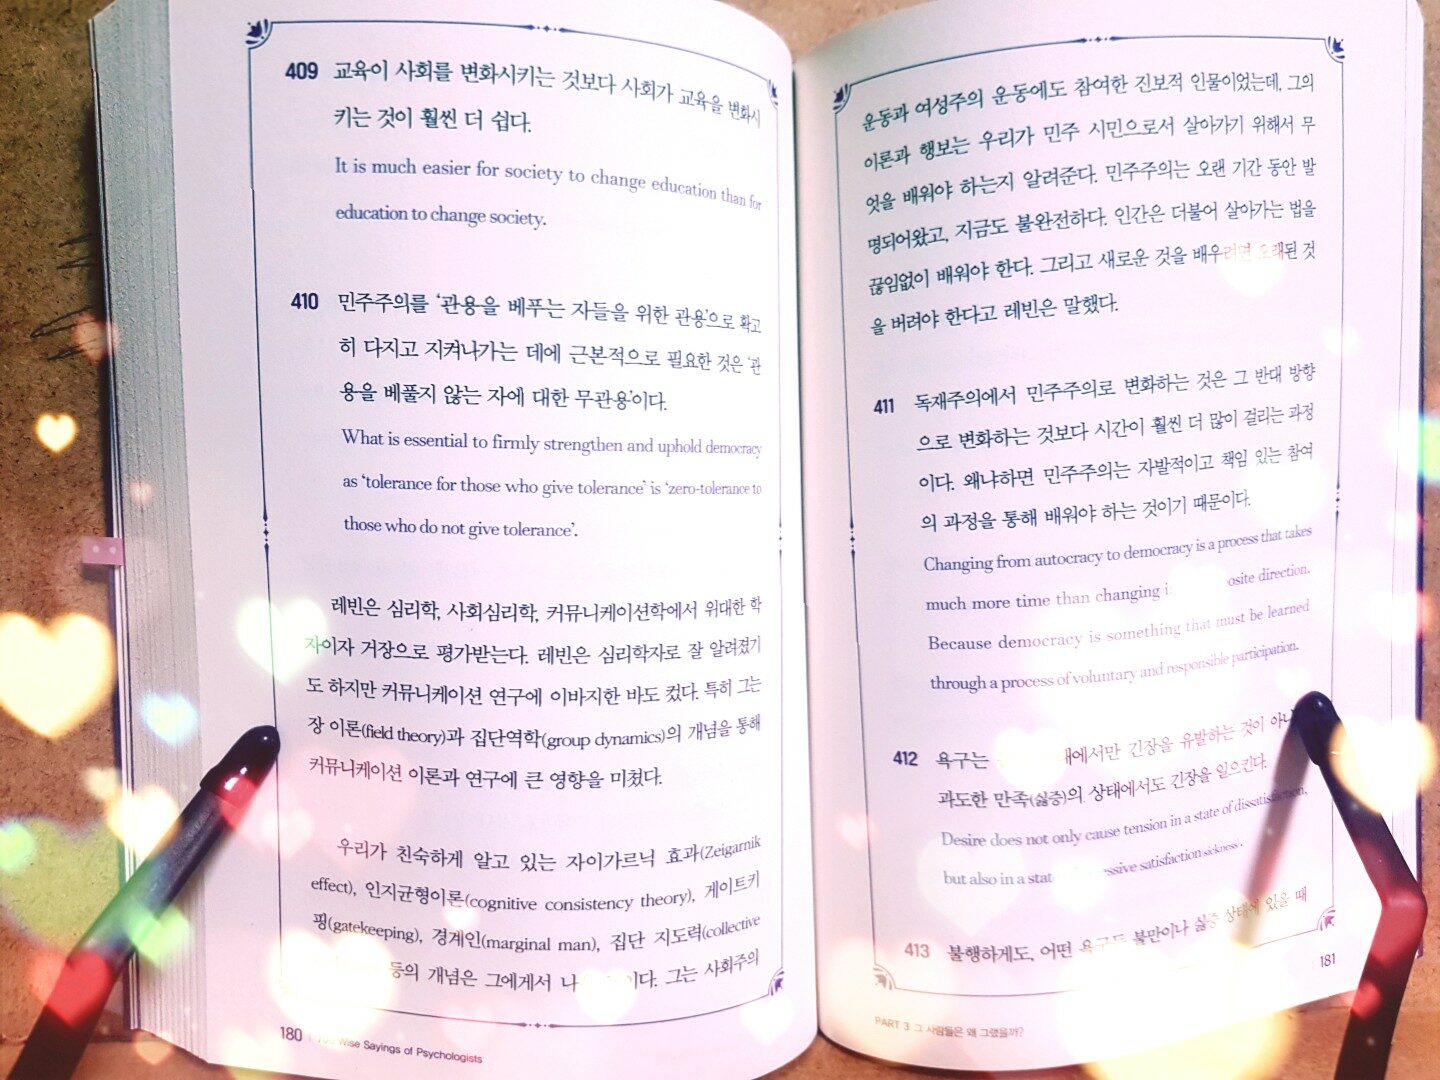 409 교육이 사회를 변화시키는 것보다 사회가 교육을 변화시
키는 것이 훨씬 더 쉽다.
It is much easier for society to change education than for
education to change society.
410 민주주의를 ‘관용을 베푸는 자들을 위한 관용’으로 확고
히 다지고 지켜나가는 데에 근본적으로 필요한 것은 ‘관
용을 베풀지 않는 자에 대한 무관용’이다.
What is essential to firmly strengthen and uphold democracy
as ‘tolerance for those who give tolerance’ is ‘zero-tolerance to
those who do not give tolerance’.
레빈은 심리학, 사회심리학, 커뮤니케이션학에서 위대한 학
자이자 거장으로 평가받는다. 레빈은 심리학자로 잘 알려졌기
도 하지만 커뮤니케이션 연구에 이바지한 바도 컸다. 특히 그는
장 이론(field theory)과 집단역학(group dynamics)의 개념을 통해
커뮤니케이션 이론과 연구에 큰 영향을 미쳤다.
우리가 친숙하게 알고 있는 자이가르닉 효과(Zeigarnik
effect), 인지균형이론(cognitive consistency theory), 게이트키
핑(gatekeeping), 경계인(marginal man), 집단 지도력(collective
등의 개념은 그에게서 이다. 그는 사회주의
180 Wise Sayings of Psychologists
운동과 여성주의 운동에도 참여한 진보적 인물이었는데, 그의
이론과 행보는 우리가 민주 시민으로서 살아가기 위해서 무
엇을 배워야 하는지 알려준다. 민주주의는 오랜 기간 동안 발
명되어왔고, 지금도 불완전하다. 인간은 더불어 살아가는 법을
끊임없이 배워야 한다. 그리고 새로운 것을 배우려면 오래된 것
을 버려야 한다고 레빈은 말했다.
411 독재주의에서 민주주의로 변화하는 것은 그 반대 방향
으로 변화하는 것보다 시간이 훨씬 더 많이 걸리는 과정
이다. 왜냐하면 민주주의는 자발적이고 책임 있는 참여
의 과정을 통해 배워야 하는 것이기 때문이다.
Changing from autocracy to democracy is a process that takes
much more time than changing direction.
Because democracy is something that must be learned
through a process of voluntary and responsible participation.
412 욕구는 긴장을 유발하는 것이
과도한 만족(싫증)의 상태에서도 긴장을 일으킨다.
Desire does not only cause tension in a state of dissatisfaction,
but also in a satisfaction sickness.
413 불행하게도, 어떤 불만이나 싫증 상태에 있을 때
PART 3 그 사람들은 왜 그랬을까? 181